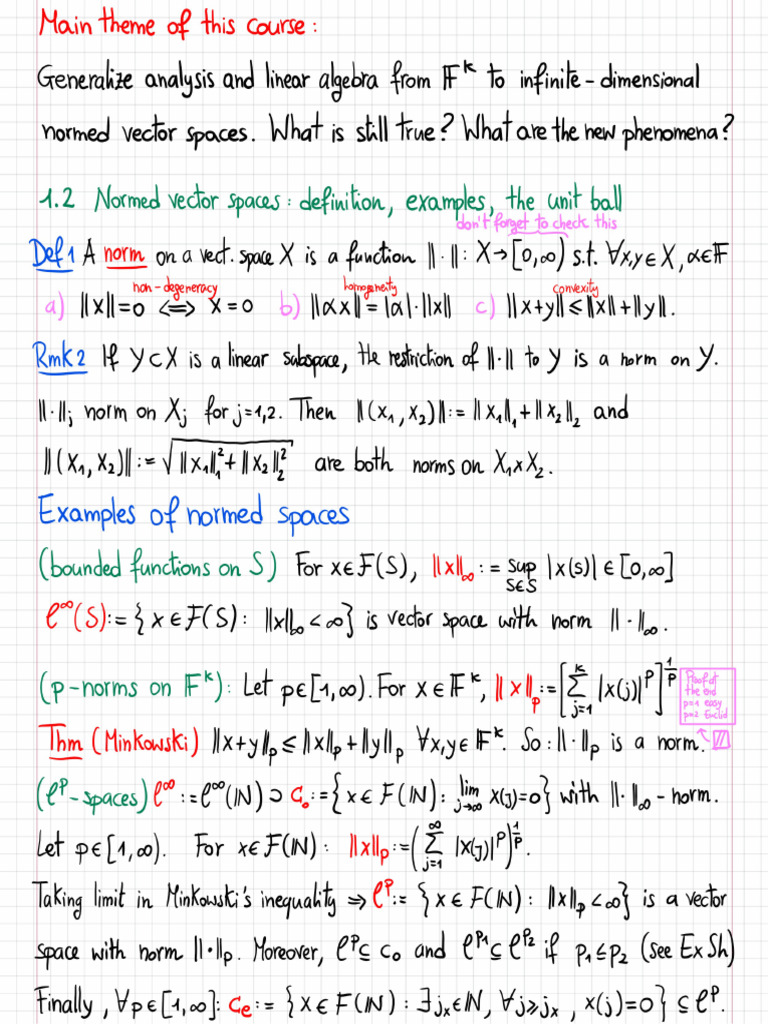 Main theme of this course:
Generalize analysis and linear algebra from 𝔽ᵏ to infinite-dimensional
normed vector spaces. What is still true? What are the new phenomena?
1.2 Normed vector spaces: definition, examples, the unit ball
don't forget to check this
Def 1 A norm on a vect. space X is a function ‖·‖: X→[0,∞) s.t. ∀x,y∈X, α∈𝔽
non-degeneracy homogeneity convexity
a) ‖x‖=0 ⟺ x=0 b) ‖αx‖=|α|·‖x‖ c) ‖x+y‖≤‖x‖+‖y‖.
Rmk 2 If Y⊂X is a linear subspace, the restriction of ‖·‖ to Y is a norm on Y.
‖·‖ⱼ norm on Xⱼ for j=1,2. Then ‖(x₁,x₂)‖:=‖x₁‖₁+‖x₂‖₂ and
‖(x₁,x₂)‖:=√(‖x₁‖₁²+‖x₂‖₂²) are both norms on X₁×X₂.
Examples of normed spaces
(bounded functions on S) For x∈F(S), ‖x‖∞ := sup_{s∈S} |x(s)| ∈[0,∞]
ℓ^∞(S):={x∈F(S): ‖x‖∞<∞} is vector space with norm ‖·‖∞.
(p-norms on 𝔽ᵏ): Let p∈[1,∞). For x∈𝔽ᵏ, ‖x‖ₚ:=[∑_{j=1}^{k} |x(j)|^p]^{1/p}
Proof at
the end
p=1 easy
p=2 Euclid
Thm (Minkowski) ‖x+y‖ₚ≤‖x‖ₚ+‖y‖ₚ ∀x,y∈𝔽ᵏ. So: ‖·‖ₚ is a norm.
(ℓ^p-spaces) ℓ^∞:=ℓ^∞(ℕ)⊃c₀:={x∈F(ℕ): lim_{j→∞} x(j)=0} with ‖·‖∞-norm.
Let p∈[1,∞). For x∈F(ℕ): ‖x‖ₚ:=(∑_{j=1}^{∞} |x(j)|^p)^{1/p}.
Taking limit in Minkowski's inequality ⇒ ℓ^p:={x∈F(ℕ): ‖x‖ₚ<∞} is a vector
space with norm ‖·‖ₚ. Moreover, ℓ^p⊆c₀ and ℓ^{p₁}⊆ℓ^{p₂} if p₁≤p₂ (see Ex Sh)
Finally, ∀p∈[1,∞]: c_e:={x∈F(ℕ): ∃jₓ∈ℕ, ∀j≥jₓ, x(j)=0}⊆ℓ^p.